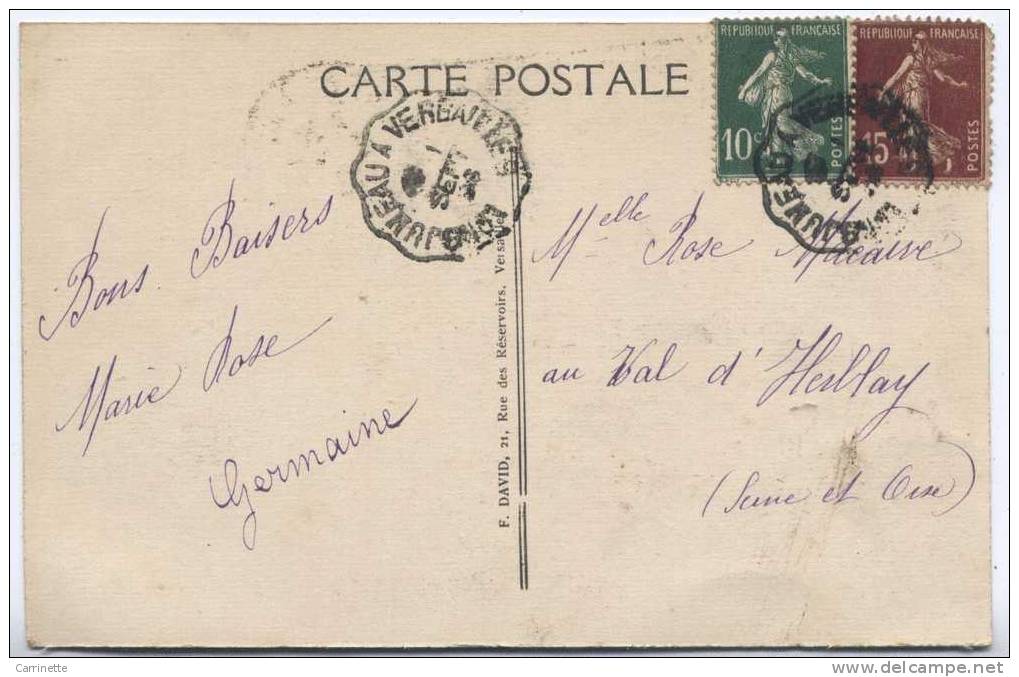 CARTE POSTALE
REPUBLIQUE FRANÇAISE
10c
POSTES
REPUBLIQUE FRANÇAISE
15
POSTES
AUNEAU A VERSAILLES
Bons Baisers
Marie Rose
Germaine
F. DAVID, 21, Rue des Réservoirs, Versailles
Melle Rose Macaire
au Val d'Herblay
(Seine et Oise)
Carrinette
www.delcampe.net